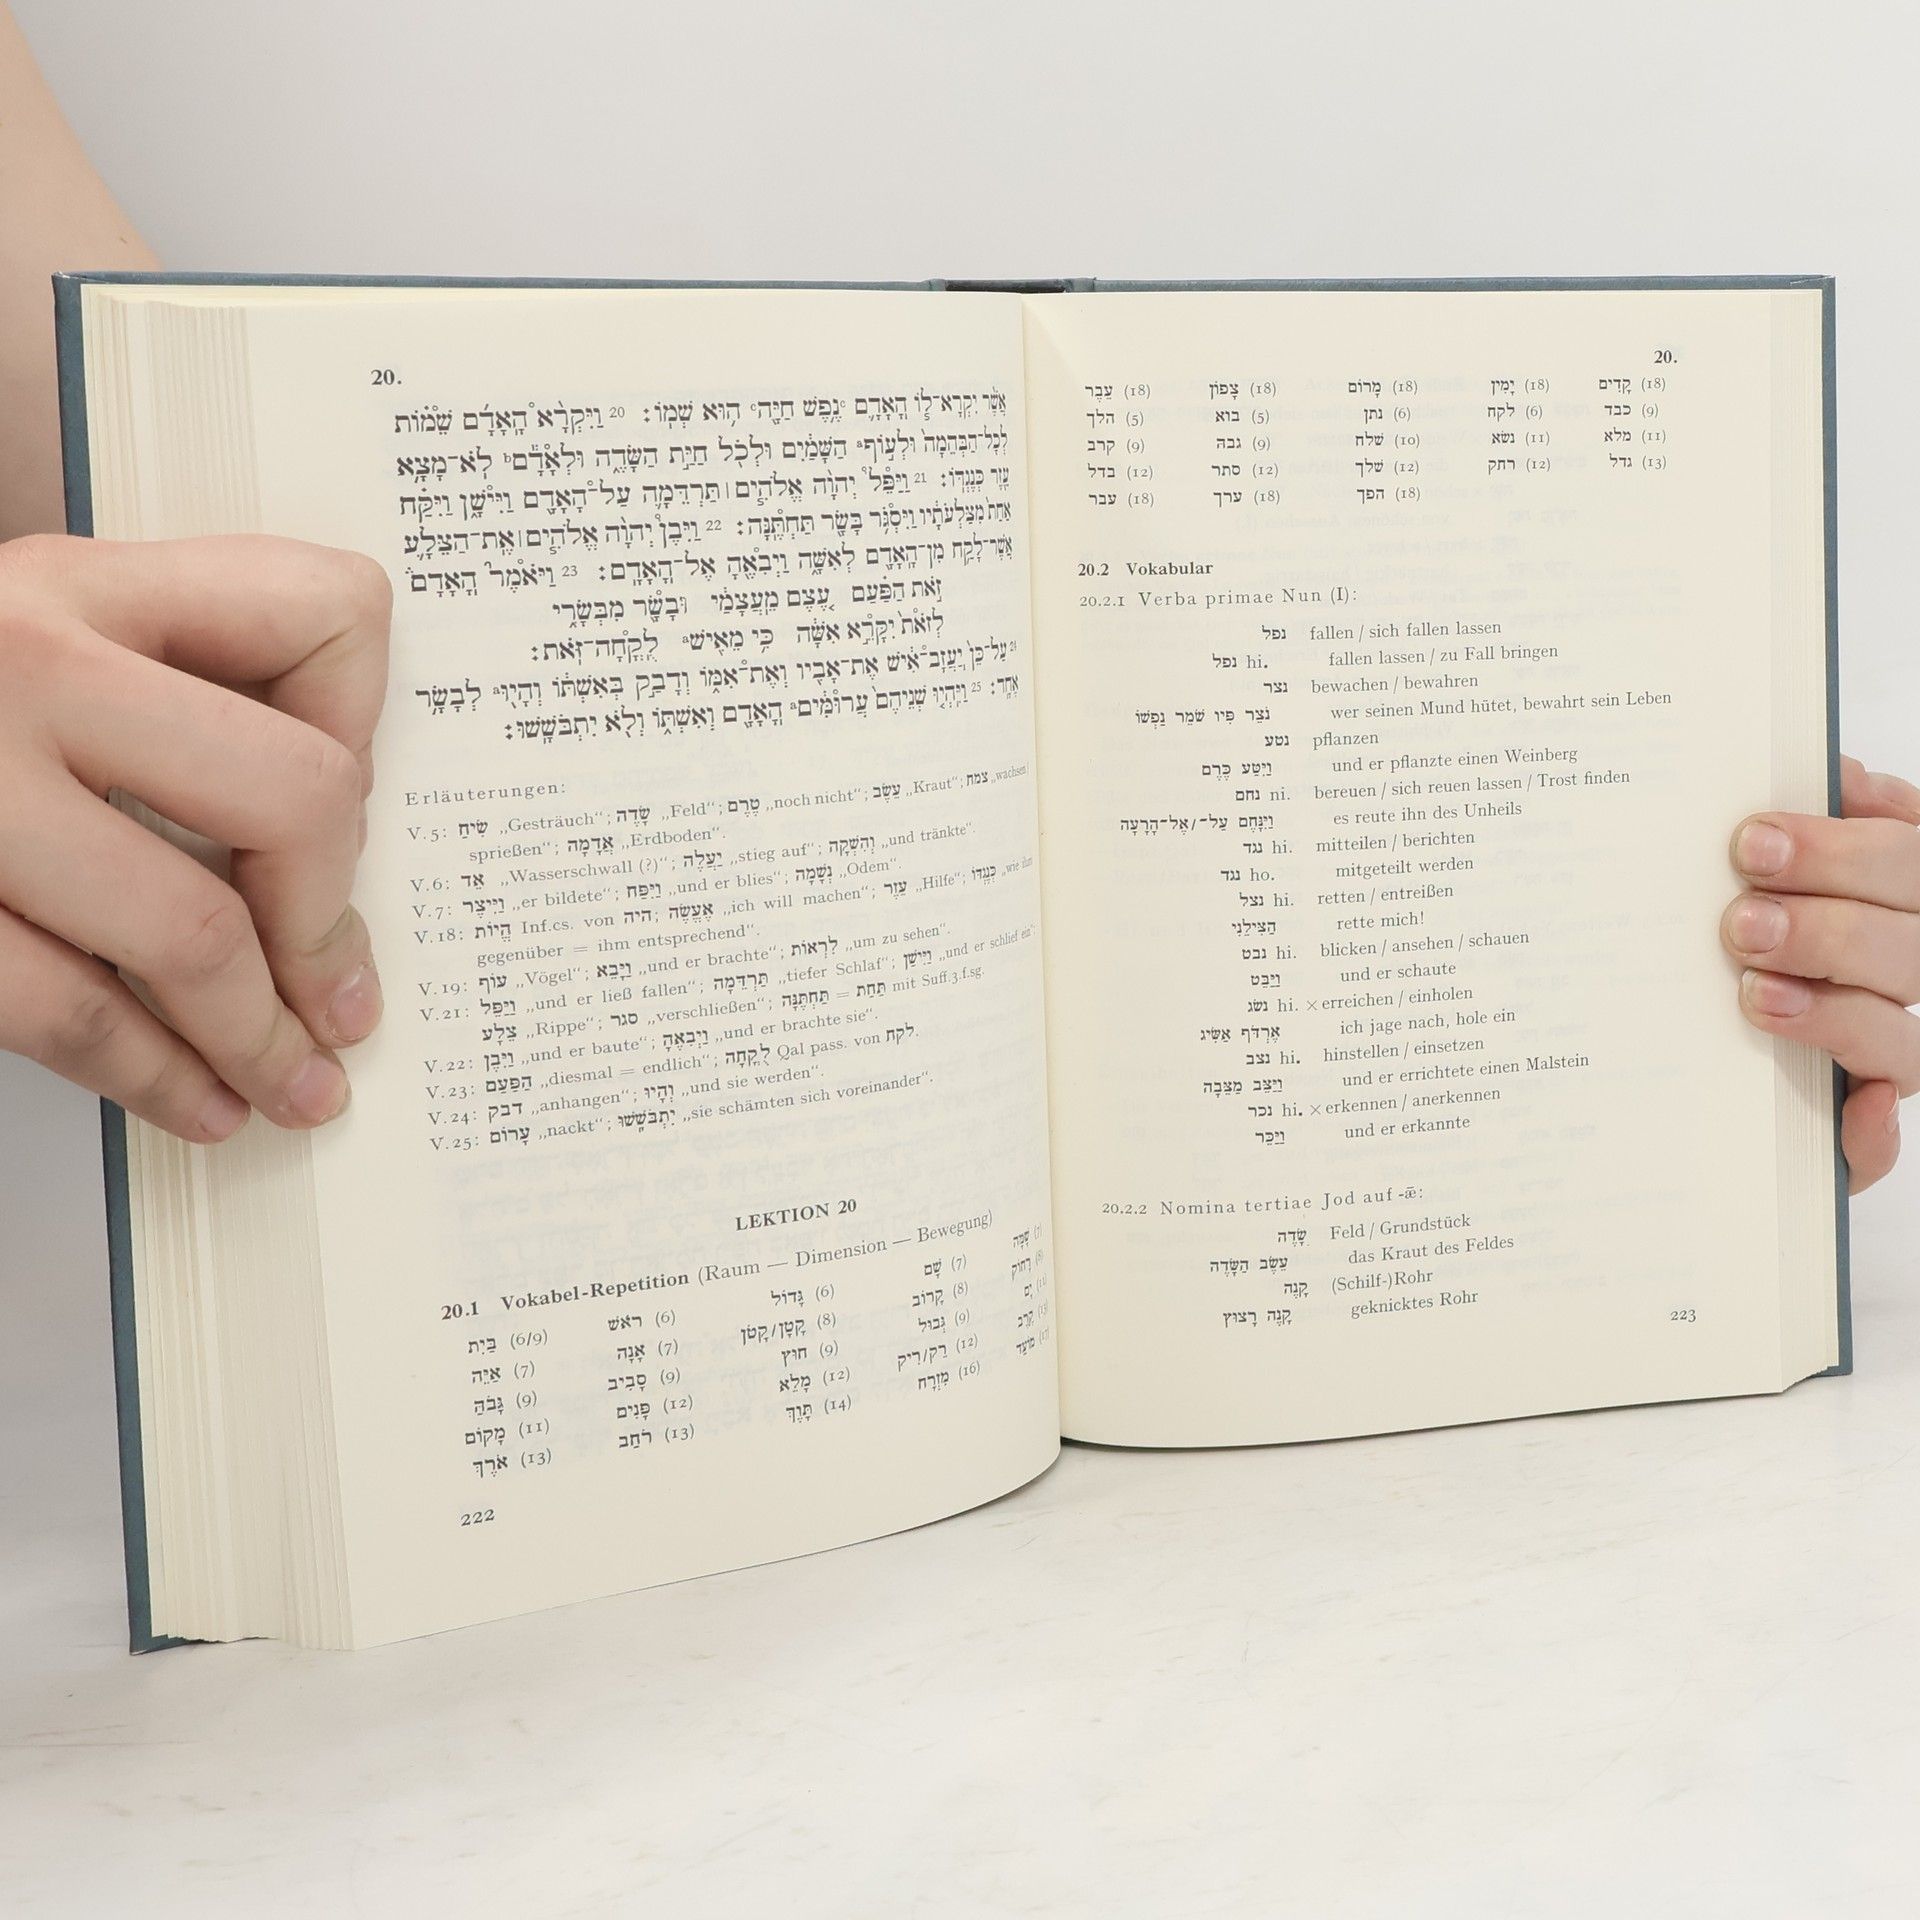 20.
אֲשֶׁר יִקְרָא־לוֹ הָאָדָם ᶜנֶפֶשׁ חַיָּהᶜ הוּא שְׁמוֹ׃ 20 וַיִּקְרָא הָאָדָם שֵׁמוֹת
לְכָל־הַבְּהֵמָה וּלְעוֹףᵃ הַשָּׁמַיִם וּלְכֹל חַיַּת הַשָּׂדֶה וּלְאָדָםᵇ לֹא־מָצָא
עֵזֶר כְּנֶגְדּוֹ׃ 21 וַיַּפֵּל יְהוָה אֱלֹהִים׀תַּרְדֵּמָה עַל־הָאָדָם וַיִּישָׁן וַיִּקַּח
אַחַת מִצַּלְעֹתָיו וַיִּסְגֹּר בָּשָׂר תַּחְתֶּנָּה׃ 22 וַיִּבֶן יְהוָה אֱלֹהִים׀אֶת־הַצֵּלָע
אֲשֶׁר־לָקַח מִן־הָאָדָם לְאִשָּׁה וַיְבִאֶהָ אֶל־הָאָדָם׃ 23 וַיֹּאמֶר הָאָדָם
זֹאת הַפַּעַם עֶצֶם מֵעֲצָמַי וּבָשָׂר מִבְּשָׂרִי
לְזֹאת יִקָּרֵא אִשָּׁה כִּי מֵאִישׁᵃ לֻקֳחָה־זֹּאת׃
24 עַל־כֵּן יַעֲזָב־אִישׁ אֶת־אָבִיו וְאֶת־אִמּוֹ וְדָבַק בְּאִשְׁתּוֹ וְהָיוּᵃ לְבָשָׂר
אֶחָד׃ 25 וַיִּהְיוּ שְׁנֵיהֶם עֲרוּמִּיםᵃ הָאָדָם וְאִשְׁתּוֹ וְלֹא יִתְבֹּשָׁשׁוּ׃
Erläuterungen:
V. 5: שִׂיחַ „Gesträuch“; שָׂדֶה „Feld“; טֶרֶם „noch nicht“; עֵשֶׂב „Kraut“; צמח „wachsen/
sprießen“; אֲדָמָה „Erdboden“.
V. 6: אֵד „Wasserschwall (?)“; יַעֲלֶה „stieg auf“; וְהִשְׁקָה „und tränkte“.
V. 7: וַיִּיצֶר „er bildete“; וַיִּפַּח „und er blies“; נְשָׁמָה „Odem“.
V. 18: הֱיוֹת Inf.cs. von היה; אֶעֱשֶׂה „ich will machen“; עֵזֶר „Hilfe“; כְּנֶגְדּוֹ „wie ihm
gegenüber = ihm entsprechend“.
V. 19: עוֹף „Vögel“; וַיָּבֵא „und er brachte“; לִרְאוֹת „um zu sehen“.
V. 21: וַיַּפֵּל „und er ließ fallen“; תַּרְדֵּמָה „tiefer Schlaf“; וַיִּישָׁן „und er schlief ein“;
צֵלָע „Rippe“; סגר „verschließen“; תַּחְתֶּנָּה = תַּחַת mit Suff.3.f.sg.
V. 22: וַיִּבֶן „und er baute“; וַיְבִאֶהָ „und er brachte sie“.
V. 23: הַפַּעַם „diesmal = endlich“; לֻקֳחָה Qal pass. von לקח.
V. 24: דבק „anhangen“; וְהָיוּ „und sie werden“.
V. 25: עָרוֹם „nackt“; יִתְבֹּשָׁשׁוּ „sie schämten sich voreinander“.
LEKTION 20
20.1 Vokabel-Repetition (Raum — Dimension — Bewegung)
בַּיִת (6/9) רֹאשׁ (6) גָּדוֹל (6) שָׁם (7) שָׁמָּה (7)
אַיֵּה (7) אָנָה (7) קָטָן/קָטֹן (8) קָרוֹב (8) רָחוֹק (8)
גָּבֹהַּ (9) סָבִיב (9) חוּץ (9) גְּבוּל (9) יָם (11)
מָקוֹם (11) פָּנִים (12) מָלֵא (12) רֵק/רִיק (12) קֶרֶב (13)
אֹרֶךְ (13) רֹחַב (13) תָּוֶךְ (14) מִזְרָח (16) מוֹעֵד (17)
222
20.
עֵבֶר (18) צָפוֹן (18) מָרוֹם (18) יָמִין (18) קָדִים (18)
הלך (5) בוא (5) נתן (6) לקח (6) כבד (9)
קרב (9) גבה (9) שׁלח (10) נשׂא (11) מלא (11)
בדל (12) סתר (12) שׁלך (12) רחק (12) גדל (13)
עבר (18) ערך (18) הפך (18)
20.2 Vokabular
20.2.1 Verba primae Nun (I):
נפל fallen / sich fallen lassen
נפל hi. fallen lassen / zu Fall bringen
נצר bewachen / bewahren
נֹצֵר פִּיו שֹׁמֵר נַפְשׁוֹ wer seinen Mund hütet, bewahrt sein Leben
נטע pflanzen
וַיִּטַּע כֶּרֶם und er pflanzte einen Weinberg
נחם ni. bereuen / sich reuen lassen / Trost finden
וַיִּנָּחֶם עַל־/אֶל־הָרָעָה es reute ihn des Unheils
נגד hi. mitteilen / berichten
נגד ho. mitgeteilt werden
נצל hi. retten / entreißen
הַצִּילֵנִי rette mich!
נבט hi. blicken / ansehen / schauen
וַיַּבֵּט und er schaute
נשׂג hi. × erreichen / einholen
אֶרְדֹּף אַשִּׂיג ich jage nach, hole ein
נצב hi. hinstellen / einsetzen
וַיַּצֵּב מַצֵּבָה und er errichtete einen Malstein
נכר hi. × erkennen / anerkennen
וַיַּכֵּר und er erkannte
20.2.2 Nomina tertiae Jod auf -ǣ:
שָׂדֶה Feld / Grundstück
עֵשֶׂב הַשָּׂדֶה das Kraut des Feldes
קָנֶה (Schilf-)Rohr
קָנֶה רָצוּץ geknicktes Rohr
223